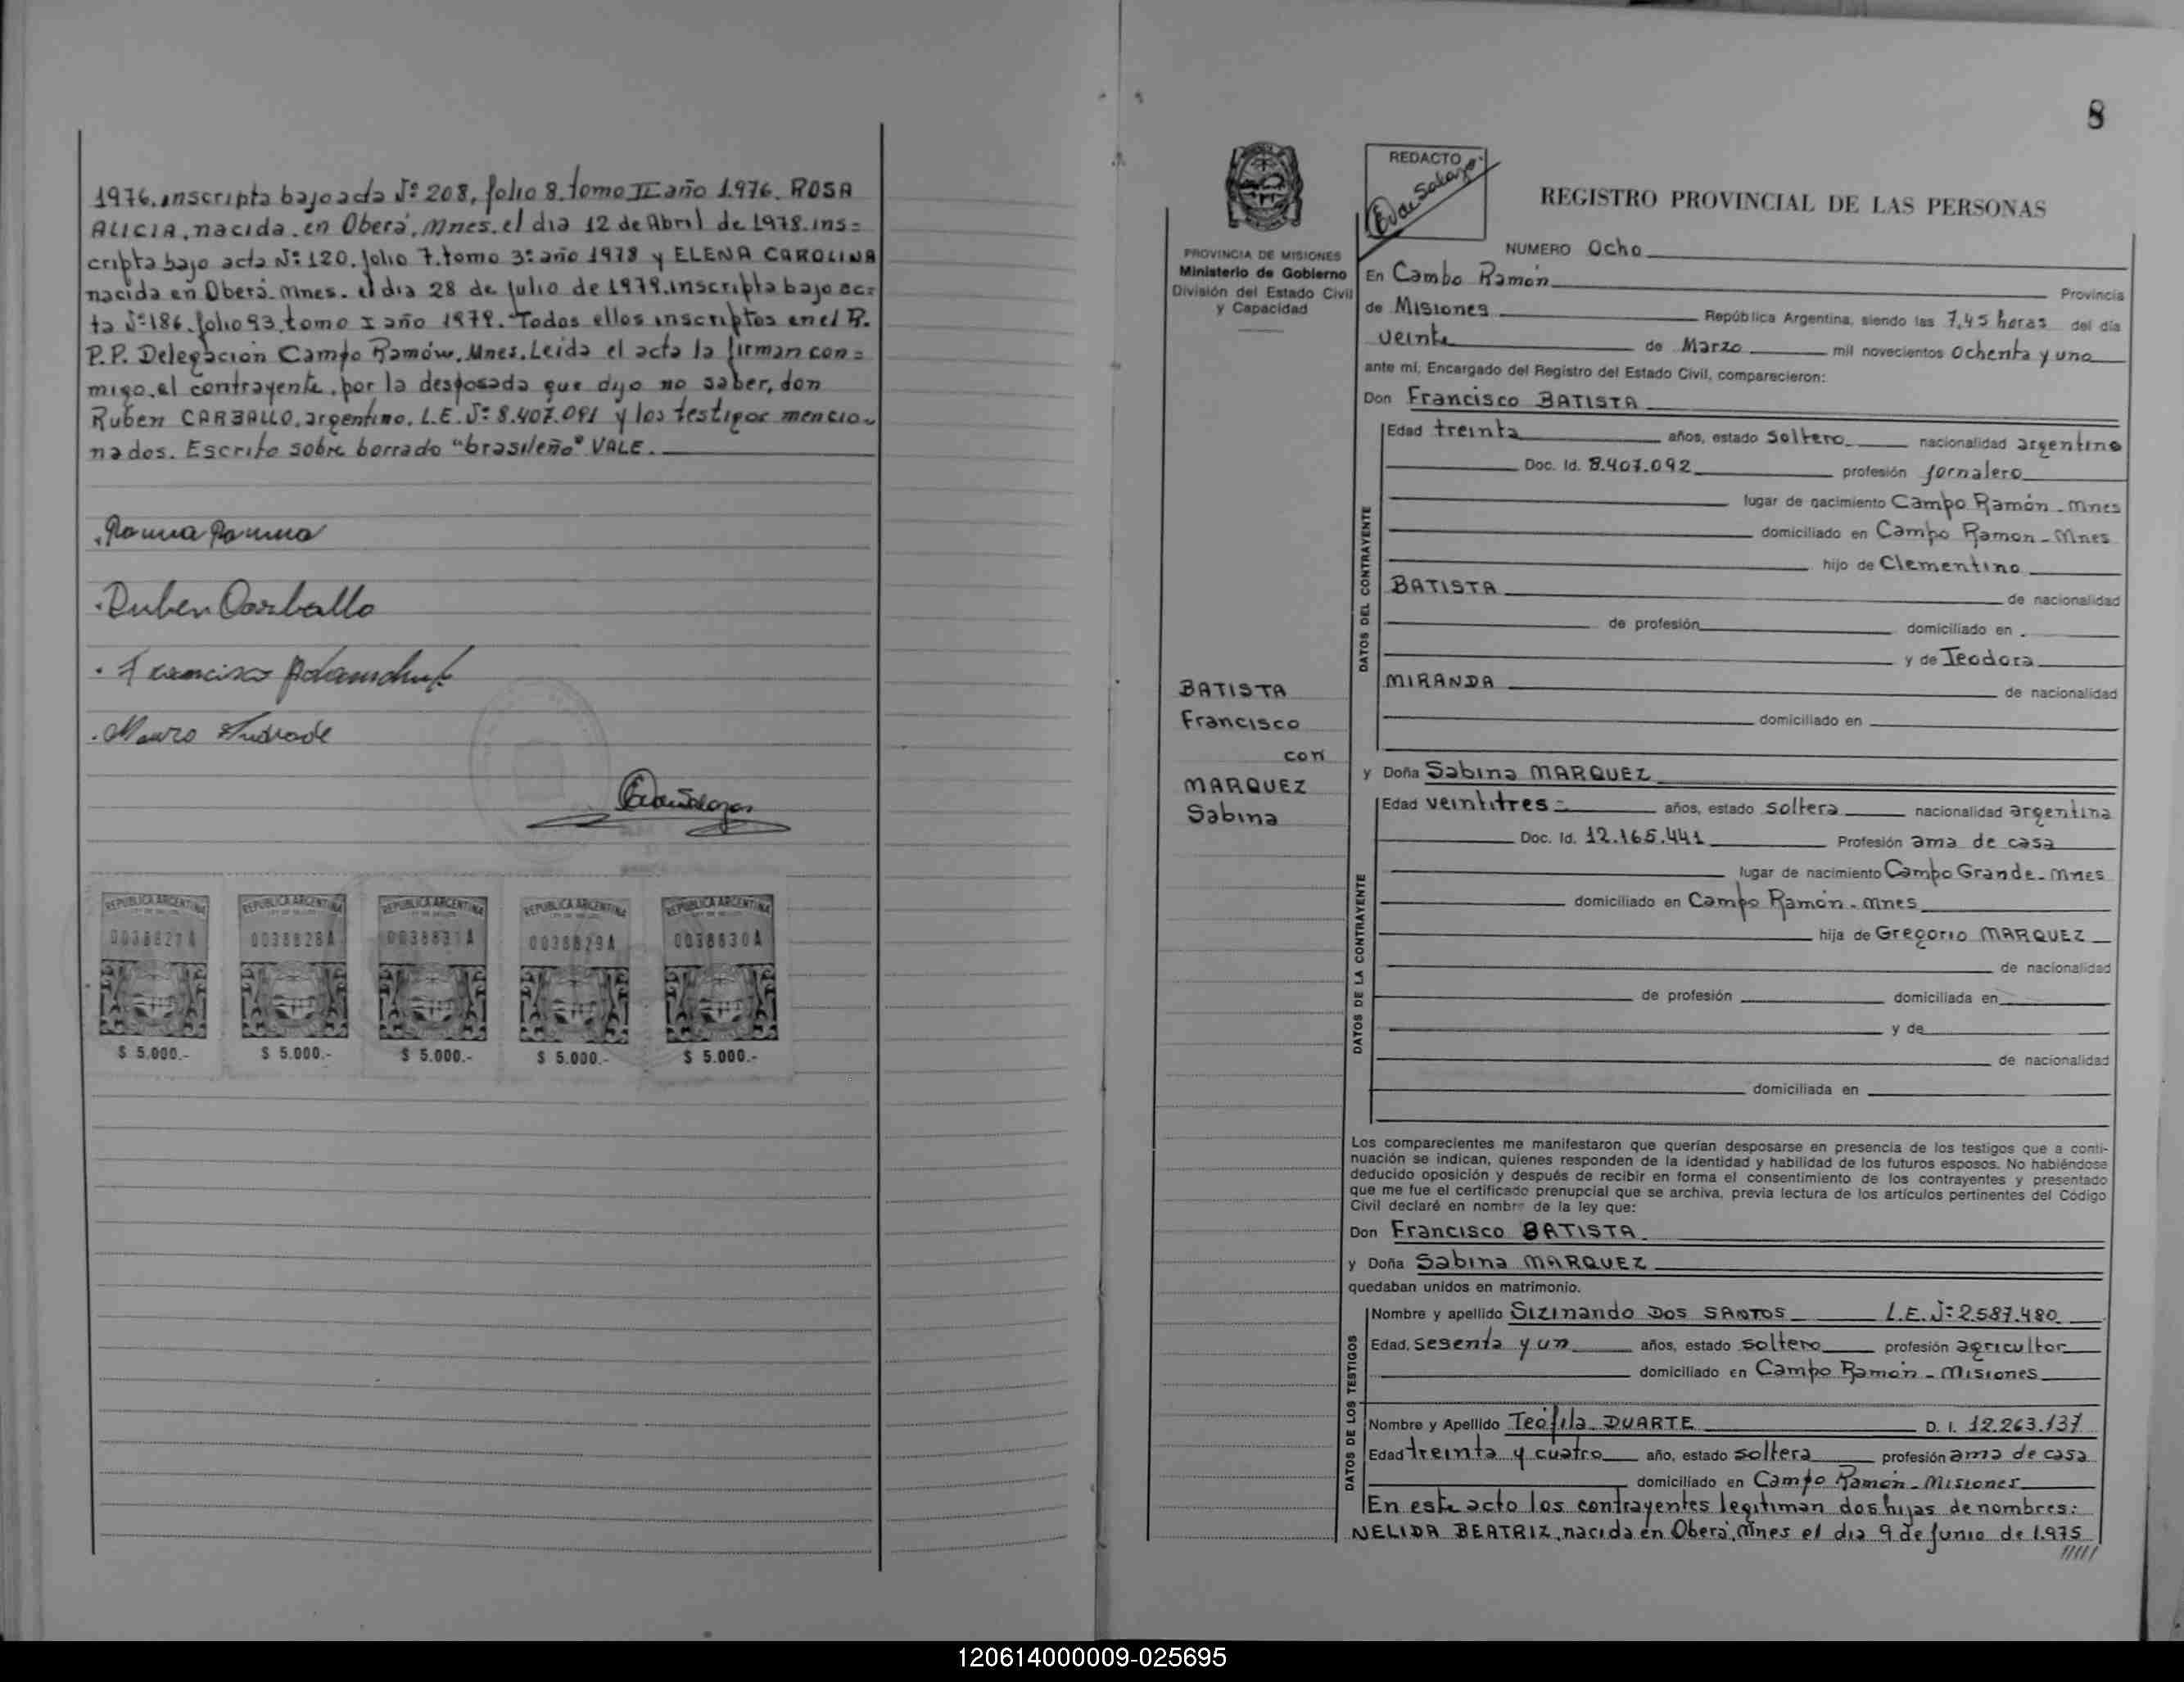 1976. inscripta bajo acta Nº 208, folio 8. tomo II año 1.976. ROSA
ALICIA, nacida en Oberá, Mnes. el dia 12 de Abril de 1978. ins=
cripta bajo acta Nº 120. folio 7. tomo 3º año 1978 y ELENA CAROLINA
nacida en Oberá. Mnes. el dia 28 de Julio de 1979. inscripta bajo ac=
ta Nº 186. folio 93. tomo I año 1979. Todas ellos inscriptos en el R.
P.P. Delegación Campo Ramón, Mnes. Leida el acta la firman con=
migo, el contrayente, por la desposada que dijo no saber, don
Ruben CARBALLO, argentino. L.E. Nº 8.407.091 y los testigos mencio-
nados. Escrito sobre borrado "brasileño" VALE.
Ruben Carballo
Francisco
Mauro Andrade
REPUBLICA ARGENTINA REPUBLICA ARGENTINA REPUBLICA ARGENTINA REPUBLICA ARGENTINA REPUBLICA ARGENTINA
0038827A 0038828A 0038831A 0038829A 0038830A
$ 5.000.- $ 5.000.- $ 5.000.- $ 5.000.- $ 5.000.-
8
REDACTO
REGISTRO PROVINCIAL DE LAS PERSONAS
PROVINCIA DE MISIONES
Ministerio de Gobierno
División del Estado Civil
y Capacidad
BATISTA
Francisco
con
MARQUEZ
Sabina
NUMERO Ocho
En Campo Ramón Provincia
de Misiones República Argentina, siendo las 7,45 horas del día
veinte de Marzo mil novecientos Ochenta y uno
ante mí, Encargado del Registro del Estado Civil, comparecieron:
Don Francisco BATISTA
DATOS DEL CONTRAYENTE
Edad treinta años, estado Soltero nacionalidad argentino
Doc. Id. 8.407.092 profesión Jornalero
lugar de nacimiento Campo Ramón - Mnes
domiciliado en Campo Ramon - Mnes
hijo de Clementino
BATISTA de nacionalidad
de profesión domiciliado en
y de Teodora
MIRANDA de nacionalidad
domiciliado en
y Doña Sabina MARQUEZ
DATOS DE LA CONTRAYENTE
Edad veintitres = años, estado soltera nacionalidad argentina
Doc. Id. 12.165.441 Profesión ama de casa
lugar de nacimiento Campo Grande - Mnes
domiciliado en Campo Ramón - Mnes
hija de Gregorio MARQUEZ
de nacionalidad
de profesión domiciliada en
y de
de nacionalidad
domiciliada en
Los comparecientes me manifestaron que querían desposarse en presencia de los testigos que a conti-
nuación se indican, quienes responden de la identidad y habilidad de los futuros esposos. No habiéndose
deducido oposición y después de recibir en forma el consentimiento de los contrayentes y presentado
que me fue el certificado prenupcial que se archiva, previa lectura de los artículos pertinentes del Código
Civil declaré en nombre de la ley que:
Don Francisco BATISTA
y Doña Sabina MARQUEZ
quedaban unidos en matrimonio.
DATOS DE LOS TESTIGOS
Nombre y apellido Sizinando DOS SANTOS L.E. Nº 2.587.480
Edad. sesenta y un años, estado soltero profesión agricultor
domiciliado en Campo Ramón - Misiones
Nombre y Apellido Teófila DUARTE D. I. 12.263.137
Edad treinta y cuatro año, estado soltera profesión ama de casa
domiciliado en Campo Ramón - Misiones
En este acto los contrayentes legitiman dos hijas de nombres:
NELIDA BEATRIZ, nacida en Oberá, Mnes el dia 9 de Junio de 1.975
//////
120614000009-025695